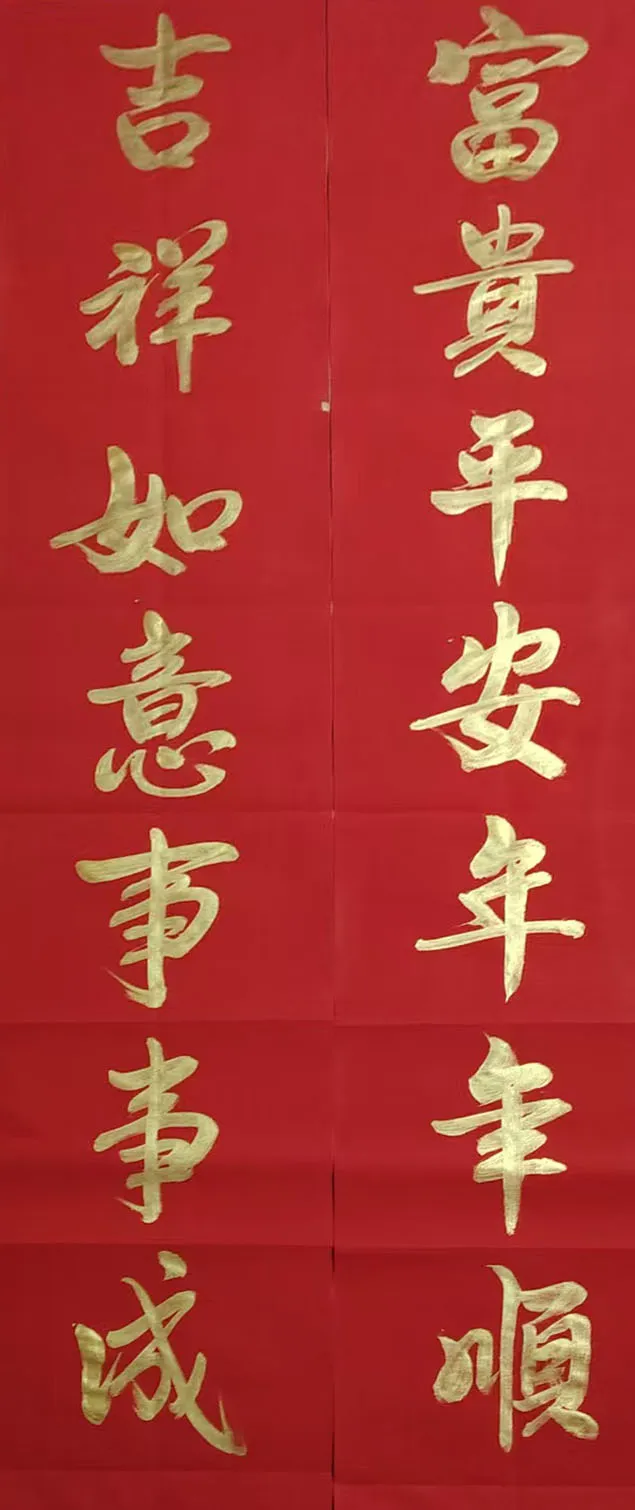 富貴平安年年順
吉祥如意事事成